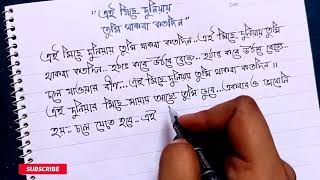 "এই মিছে দুনিয়ায়
তুমি থাকবা কতদিন"
এই মিছে দুনিয়ায় তুমি থাকবা কতদিন..এই মিছে দুনিয়ায় তুমি
থাকবা কতদিন..হঠাৎ করে উঠবে বেজে..হঠাৎ করে উঠবে বেজে
চলে যাওয়ার বীণ...এই মিছে দুনিয়ায় তুমি থাকবা কতদিন॥
এই দুনিয়ার মিছে মায়ায় আছো তুমি ডুবে..একবারও ভাবোনি
হায়..চলে যেতে হবে..এই
SUBSCRIBE